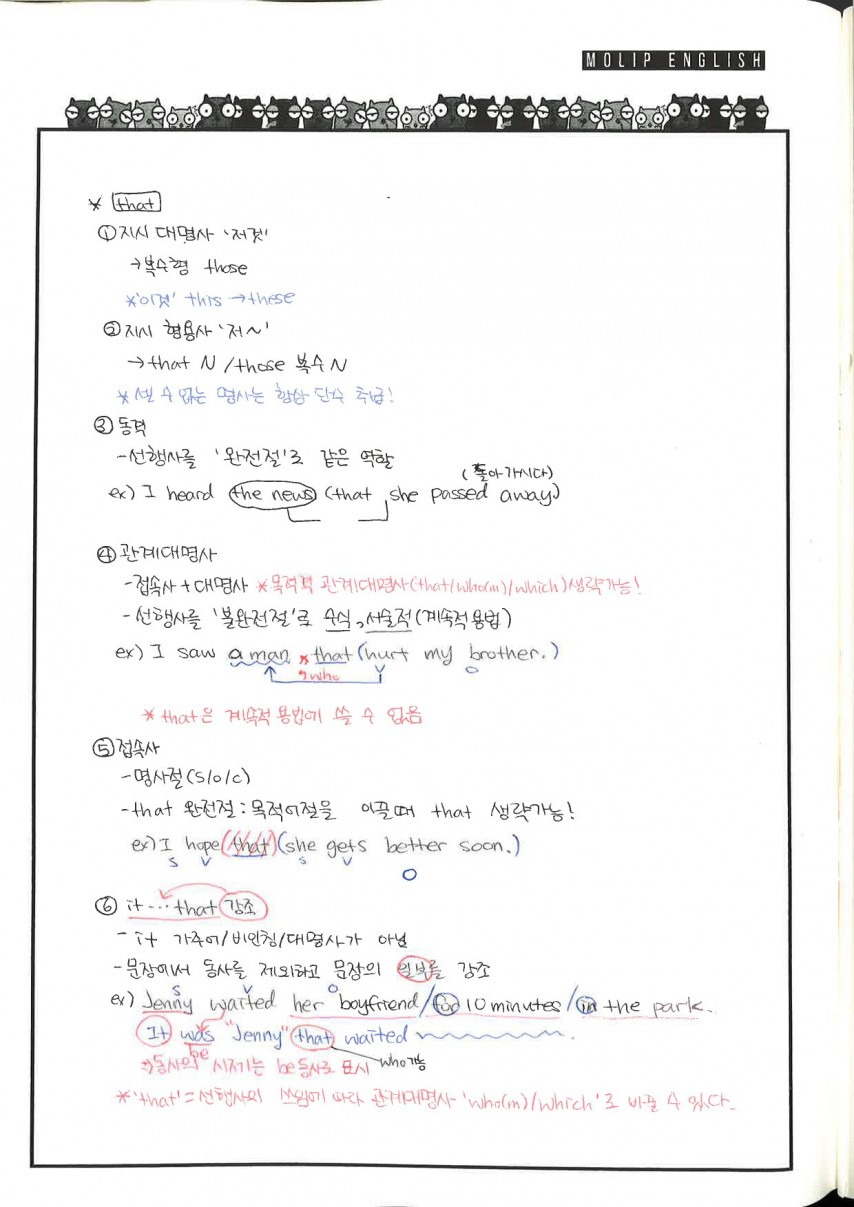 MOLIP ENGLISH
* that
① 지시 대명사 '저것'
→복수형 those
*'이것' this → these
② 지시 형용사 '저~'
→ that N / those 복수 N
* 셀 수 없는 명사는 항상 단수 취급!
③ 동격
- 선행사를 '완전절'로 같은 역할
(돌아가시다)
ex) I heard the news (that she passed away)
④ 관계대명사
- 접속사 + 대명사 *목적격 관계대명사(that/who(m)/which)생략가능!
- 선행사를 '불완전절'로 수식, 서술적(계속적용법)
ex) I saw a man that (hurt my brother.)
, who V O
* that은 계속적 용법에 쓸 수 없음
⑤ 접속사
- 명사절(S/O/C)
- that 완전절 : 목적어절을 이끌때 that 생략가능!
ex) I hope (that) (she gets better soon.)
S V S V
O
⑥ it ... that 강조
- it 가주어/비인칭/대명사가 아님
- 문장에서 동사를 제외하고 문장의 일부를 강조
S V O
ex) Jenny waited her boyfriend / for 10 minutes / in the park.
It was "Jenny" that waited ~
be
→동사의 시제는 be동사로 표시 who가능
*'that' = 선행사의 쓰임에 따라 관계대명사 'who(m)/which'로 바꿀 수 있다.